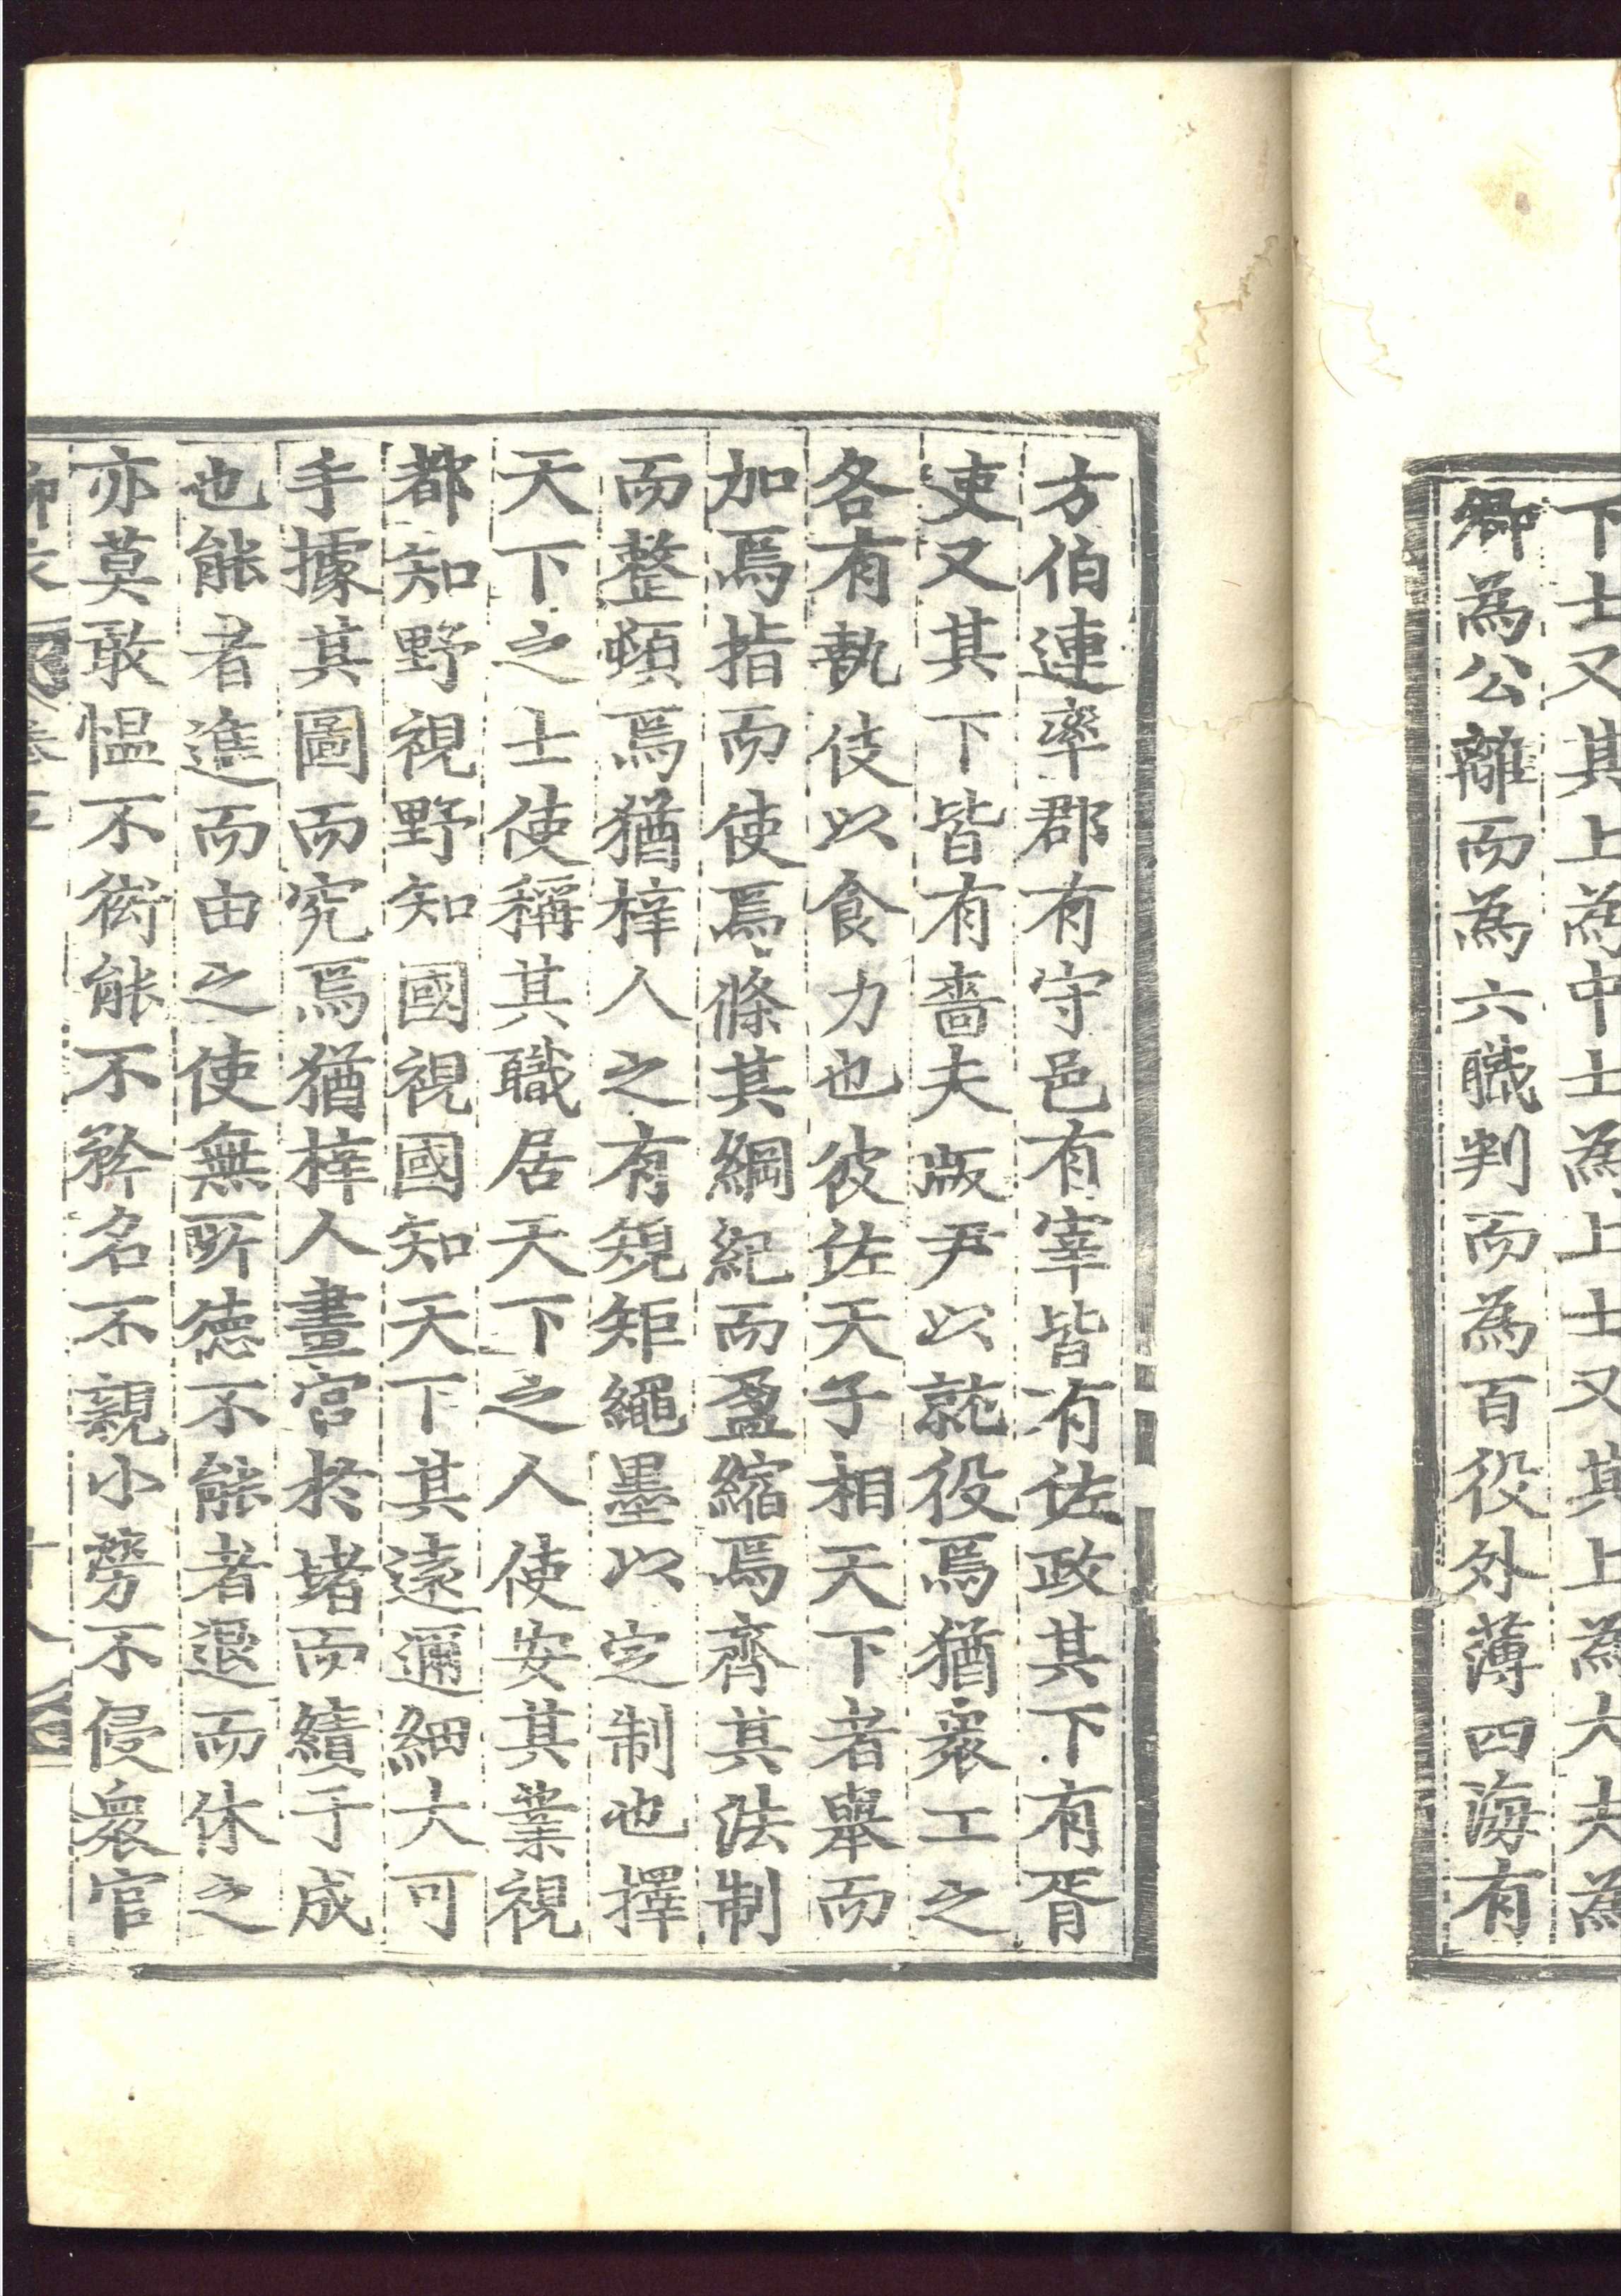 下士又其上爲中士爲上士又其上爲大夫爲
卿爲公離而爲六職判而爲百役外薄四海有
方伯連率郡有守邑有宰皆有佐政其下有胥
吏又其下皆有嗇夫版尹以就役焉猶衆工之
各有執伎以食力也彼佐天子相天下者舉而
加焉指而使焉條其綱紀而盈縮焉齊其法制
而整頓焉猶梓人之有䂓矩繩墨以定制也擇
天下之士使稱其職居天下之人使安其業視
都知野視野知國視國知天下其遠邇細大可
手據其圖而究焉猶梓人畫宮於堵而績于成
也能者進而由之使無所德不能者退而休之
亦莫敢愠不衒能不矜名不親小勞不侵衆官